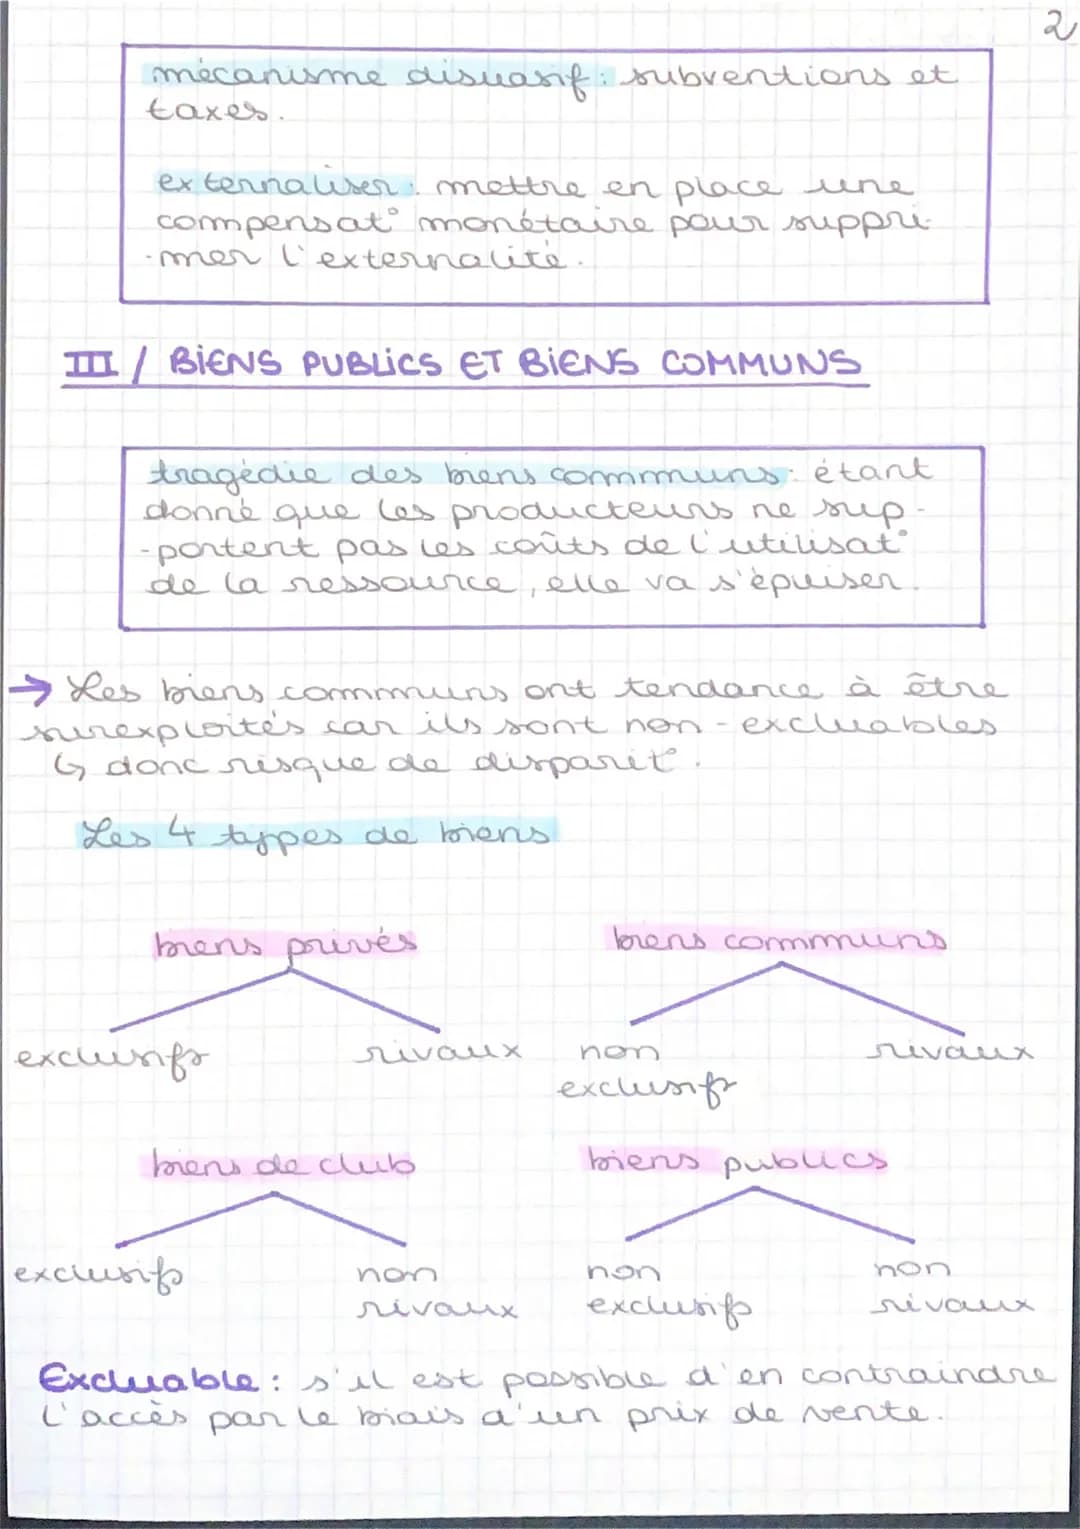 2
mécanisme disuasif : subventions et
taxes.
externaliser : mettre en place une
compensat° monétaire pour suppri-
-mer l'externalité.
III / BIENS PUBLICS ET BIENS COMMUNS
tragédie des biens communs : étant
donné que les producteurs ne sup-
-portent pas les coûts de l'utilisat°
de la ressource, elle va s'épuiser.
→ Les biens communs ont tendance à être
surexploités car ils sont non-excluables
↳ donc risque de disparit°.
Les 4 types de biens
biens privés
biens communs
exclusifs
rivaux
non
rivaux
exclusifs
biens de club
biens publics
exclusifs
non
non
non
rivaux
exclusifs
rivaux
Excluable : s'il est possible d'en contraindre
l'accès par le biais d'un prix de vente.